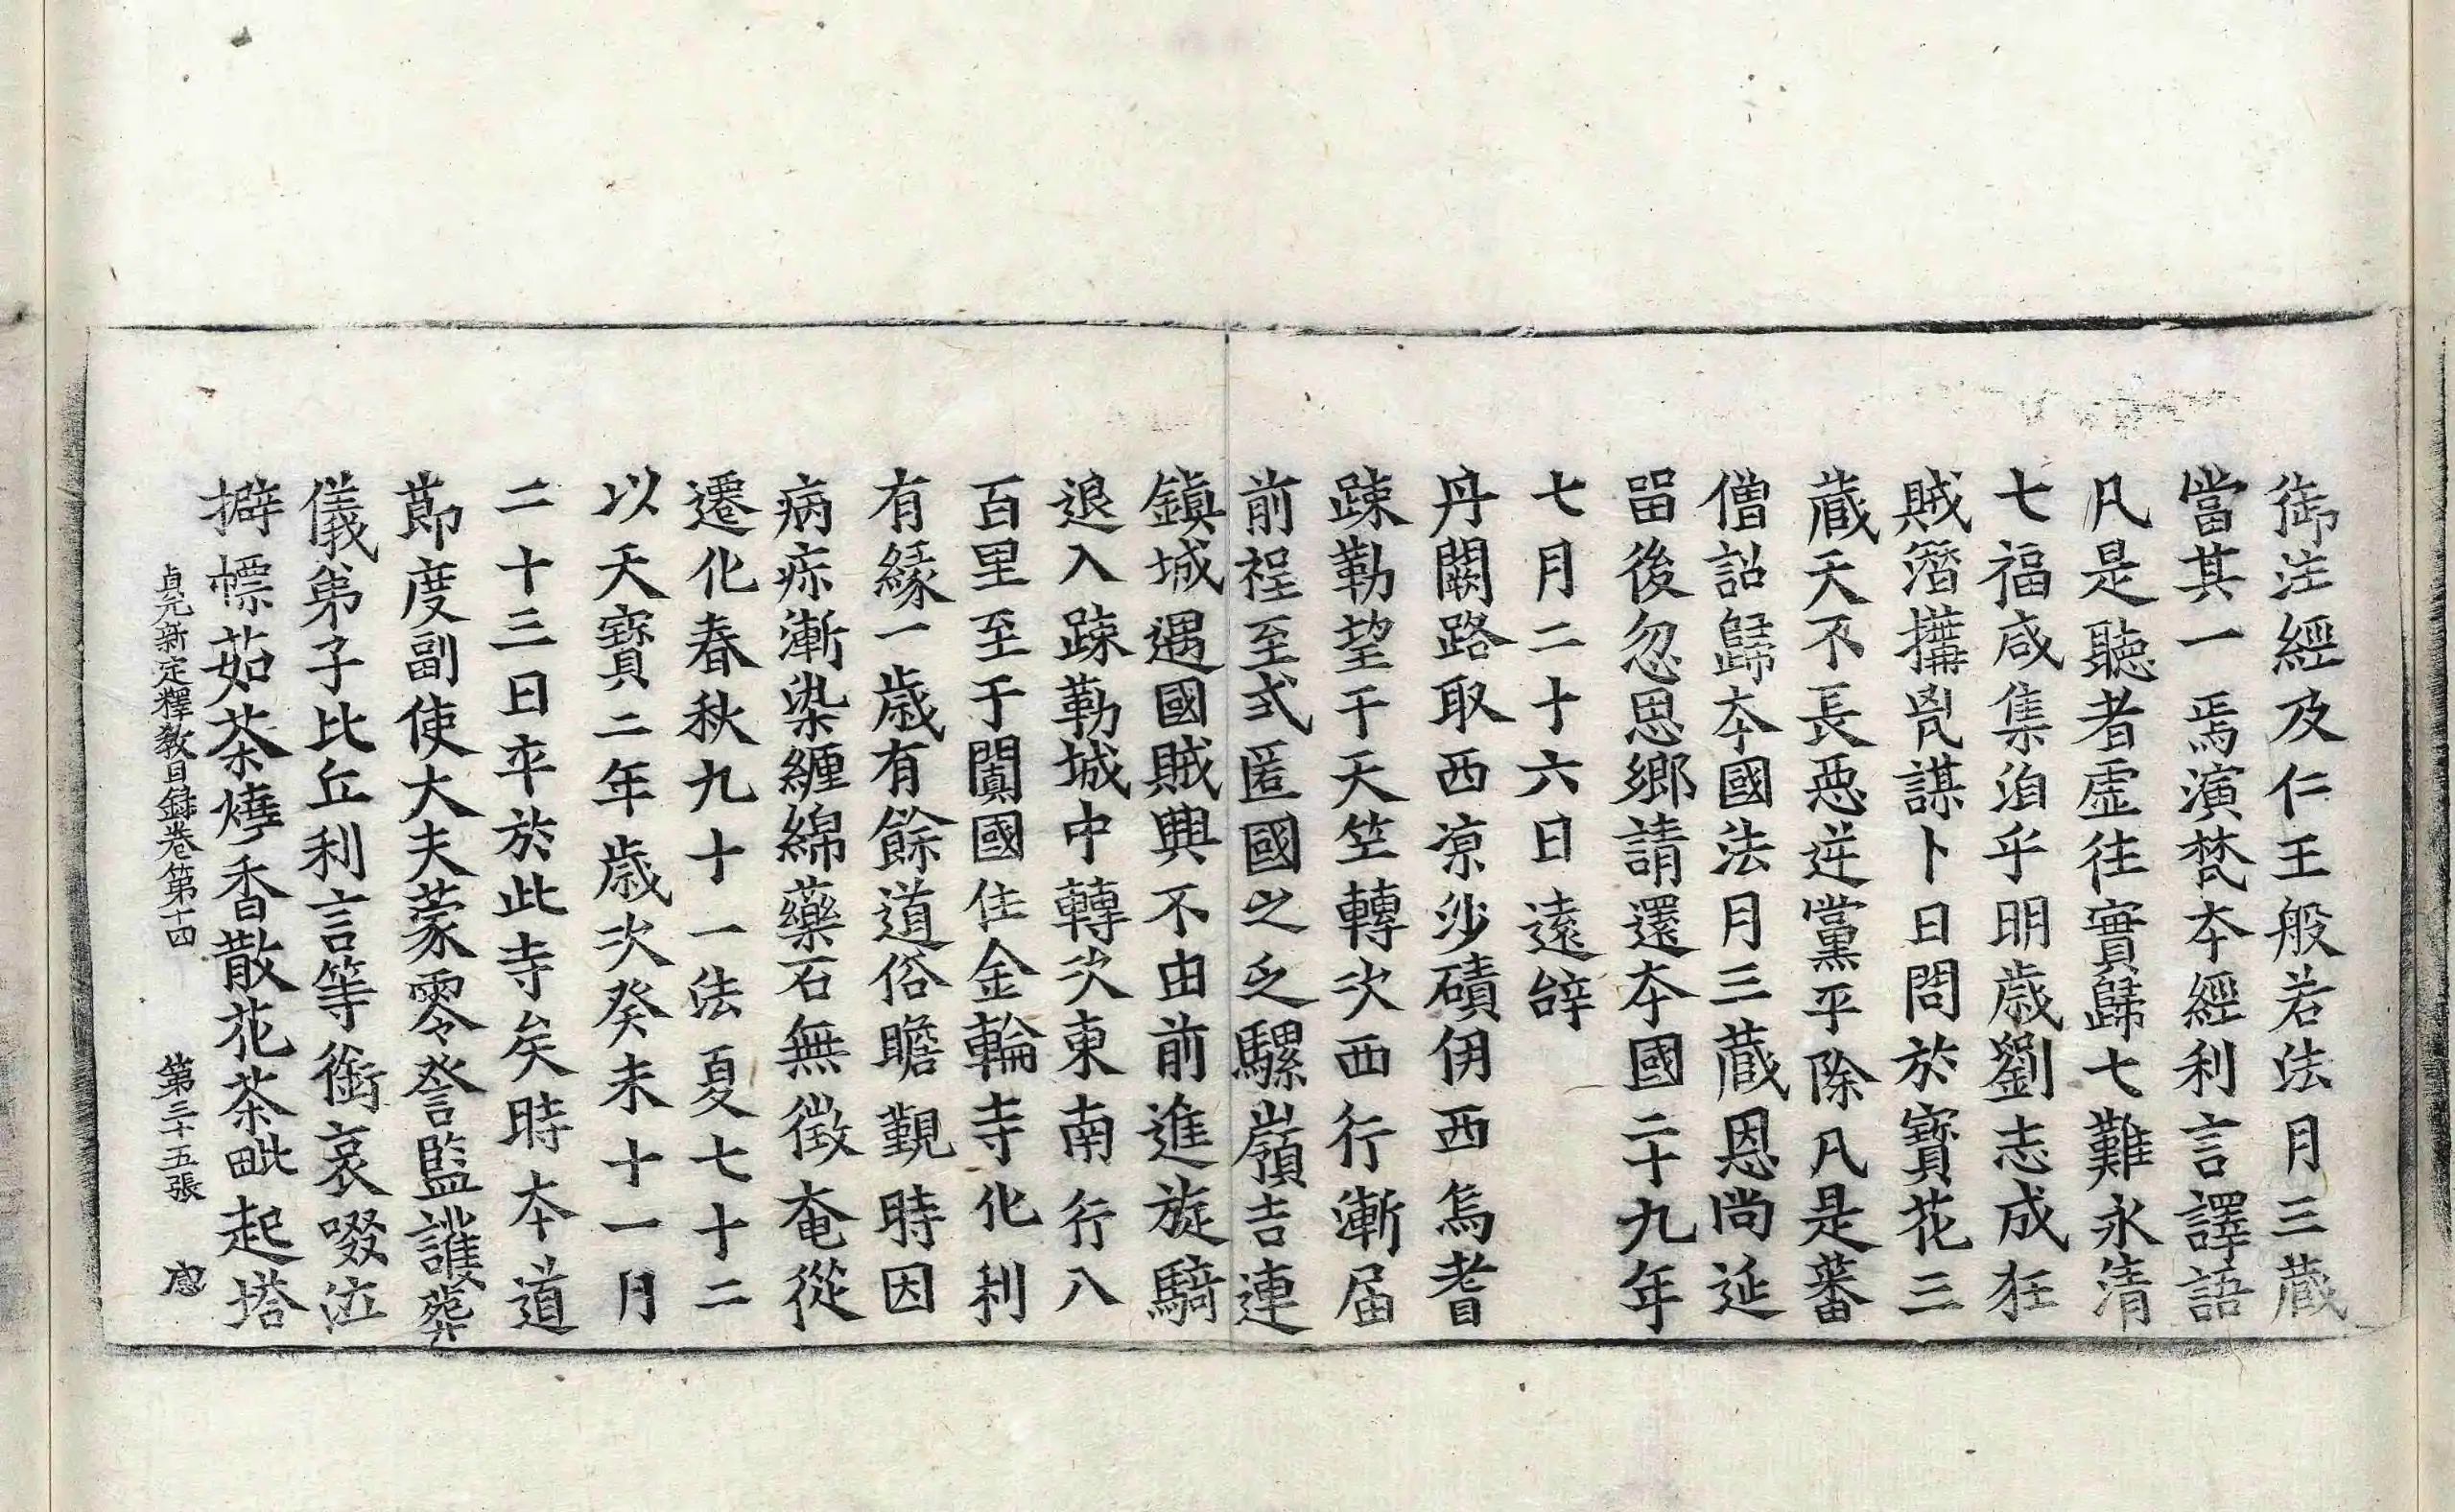 御注經及仁王般若法月三藏
當其一焉演梵本經利言譯語
凡是聽者虛往實歸七難永清
七福咸集洎乎明歲劉志成狂
賊潛搆㐫謀卜日問於寶花三
藏天不長惡逆黨平除凡是蕃
僧詔歸本國法月三藏恩尚延
留後忽思鄉請還本國二十九年
七月二十六日遠辝
丹闕路取西涼沙磧伊西焉耆
踈勒望于天竺轉次西行漸屆
前程至式匿國之乏騾嶺吉連
鎮城遇國賊興不由前進旋騎
退入踈勒城中轉次東南行八
百里至于闐國住金輪寺化利
有緣一歲有餘道俗瞻覲時因
病疹漸染纏綿藥石無徵奄從
遷化春秋九十一法夏七十二
以天寶二年歲次癸未十一月
二十三日卒於此寺矣時本道
節度副使大夫蒙零詧監護葬
儀弟子比丘利言等銜哀啜泣
擗慓茹荼燒香散花荼毗起塔
貞元新定釋教目錄卷第十四 第二十五張